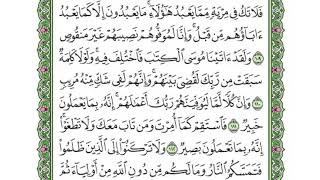 فَلَا تَكُ فِي مِرْيَةٍ مِّمَّا يَعْبُدُ هَٰؤُلَاءِ ۚ مَا يَعْبُدُونَ إِلَّا كَمَا يَعْبُدُ
ءَابَاؤُهُم مِّن قَبْلُ ۚ وَإِنَّا لَمُوَفُّوهُمْ نَصِيبَهُمْ غَيْرَ مَنقُوصٍ
١٠٩ وَلَقَدْ ءَاتَيْنَا مُوسَى الْكِتَٰبَ فَاخْتُلِفَ فِيهِ ۚ وَلَوْلَا كَلِمَةٌ
سَبَقَتْ مِن رَّبِّكَ لَقُضِيَ بَيْنَهُمْ ۚ وَإِنَّهُمْ لَفِي شَكٍّ مِّنْهُ مُرِيبٍ
١١٠ وَإِنَّ كُلًّا لَّمَّا لَيُوَفِّيَنَّهُمْ رَبُّكَ أَعْمَٰلَهُمْ ۚ إِنَّهُ بِمَا يَعْمَلُونَ
خَبِيرٌ ١١١ فَاسْتَقِمْ كَمَا أُمِرْتَ وَمَن تَابَ مَعَكَ وَلَا تَطْغَوْا ۚ
إِنَّهُ بِمَا تَعْمَلُونَ بَصِيرٌ ١١٢ وَلَا تَرْكَنُوا إِلَى الَّذِينَ ظَلَمُوا
فَتَمَسَّكُمُ النَّارُ وَمَا لَكُم مِّن دُونِ اللَّهِ مِنْ أَوْلِيَاءَ ثُمَّ